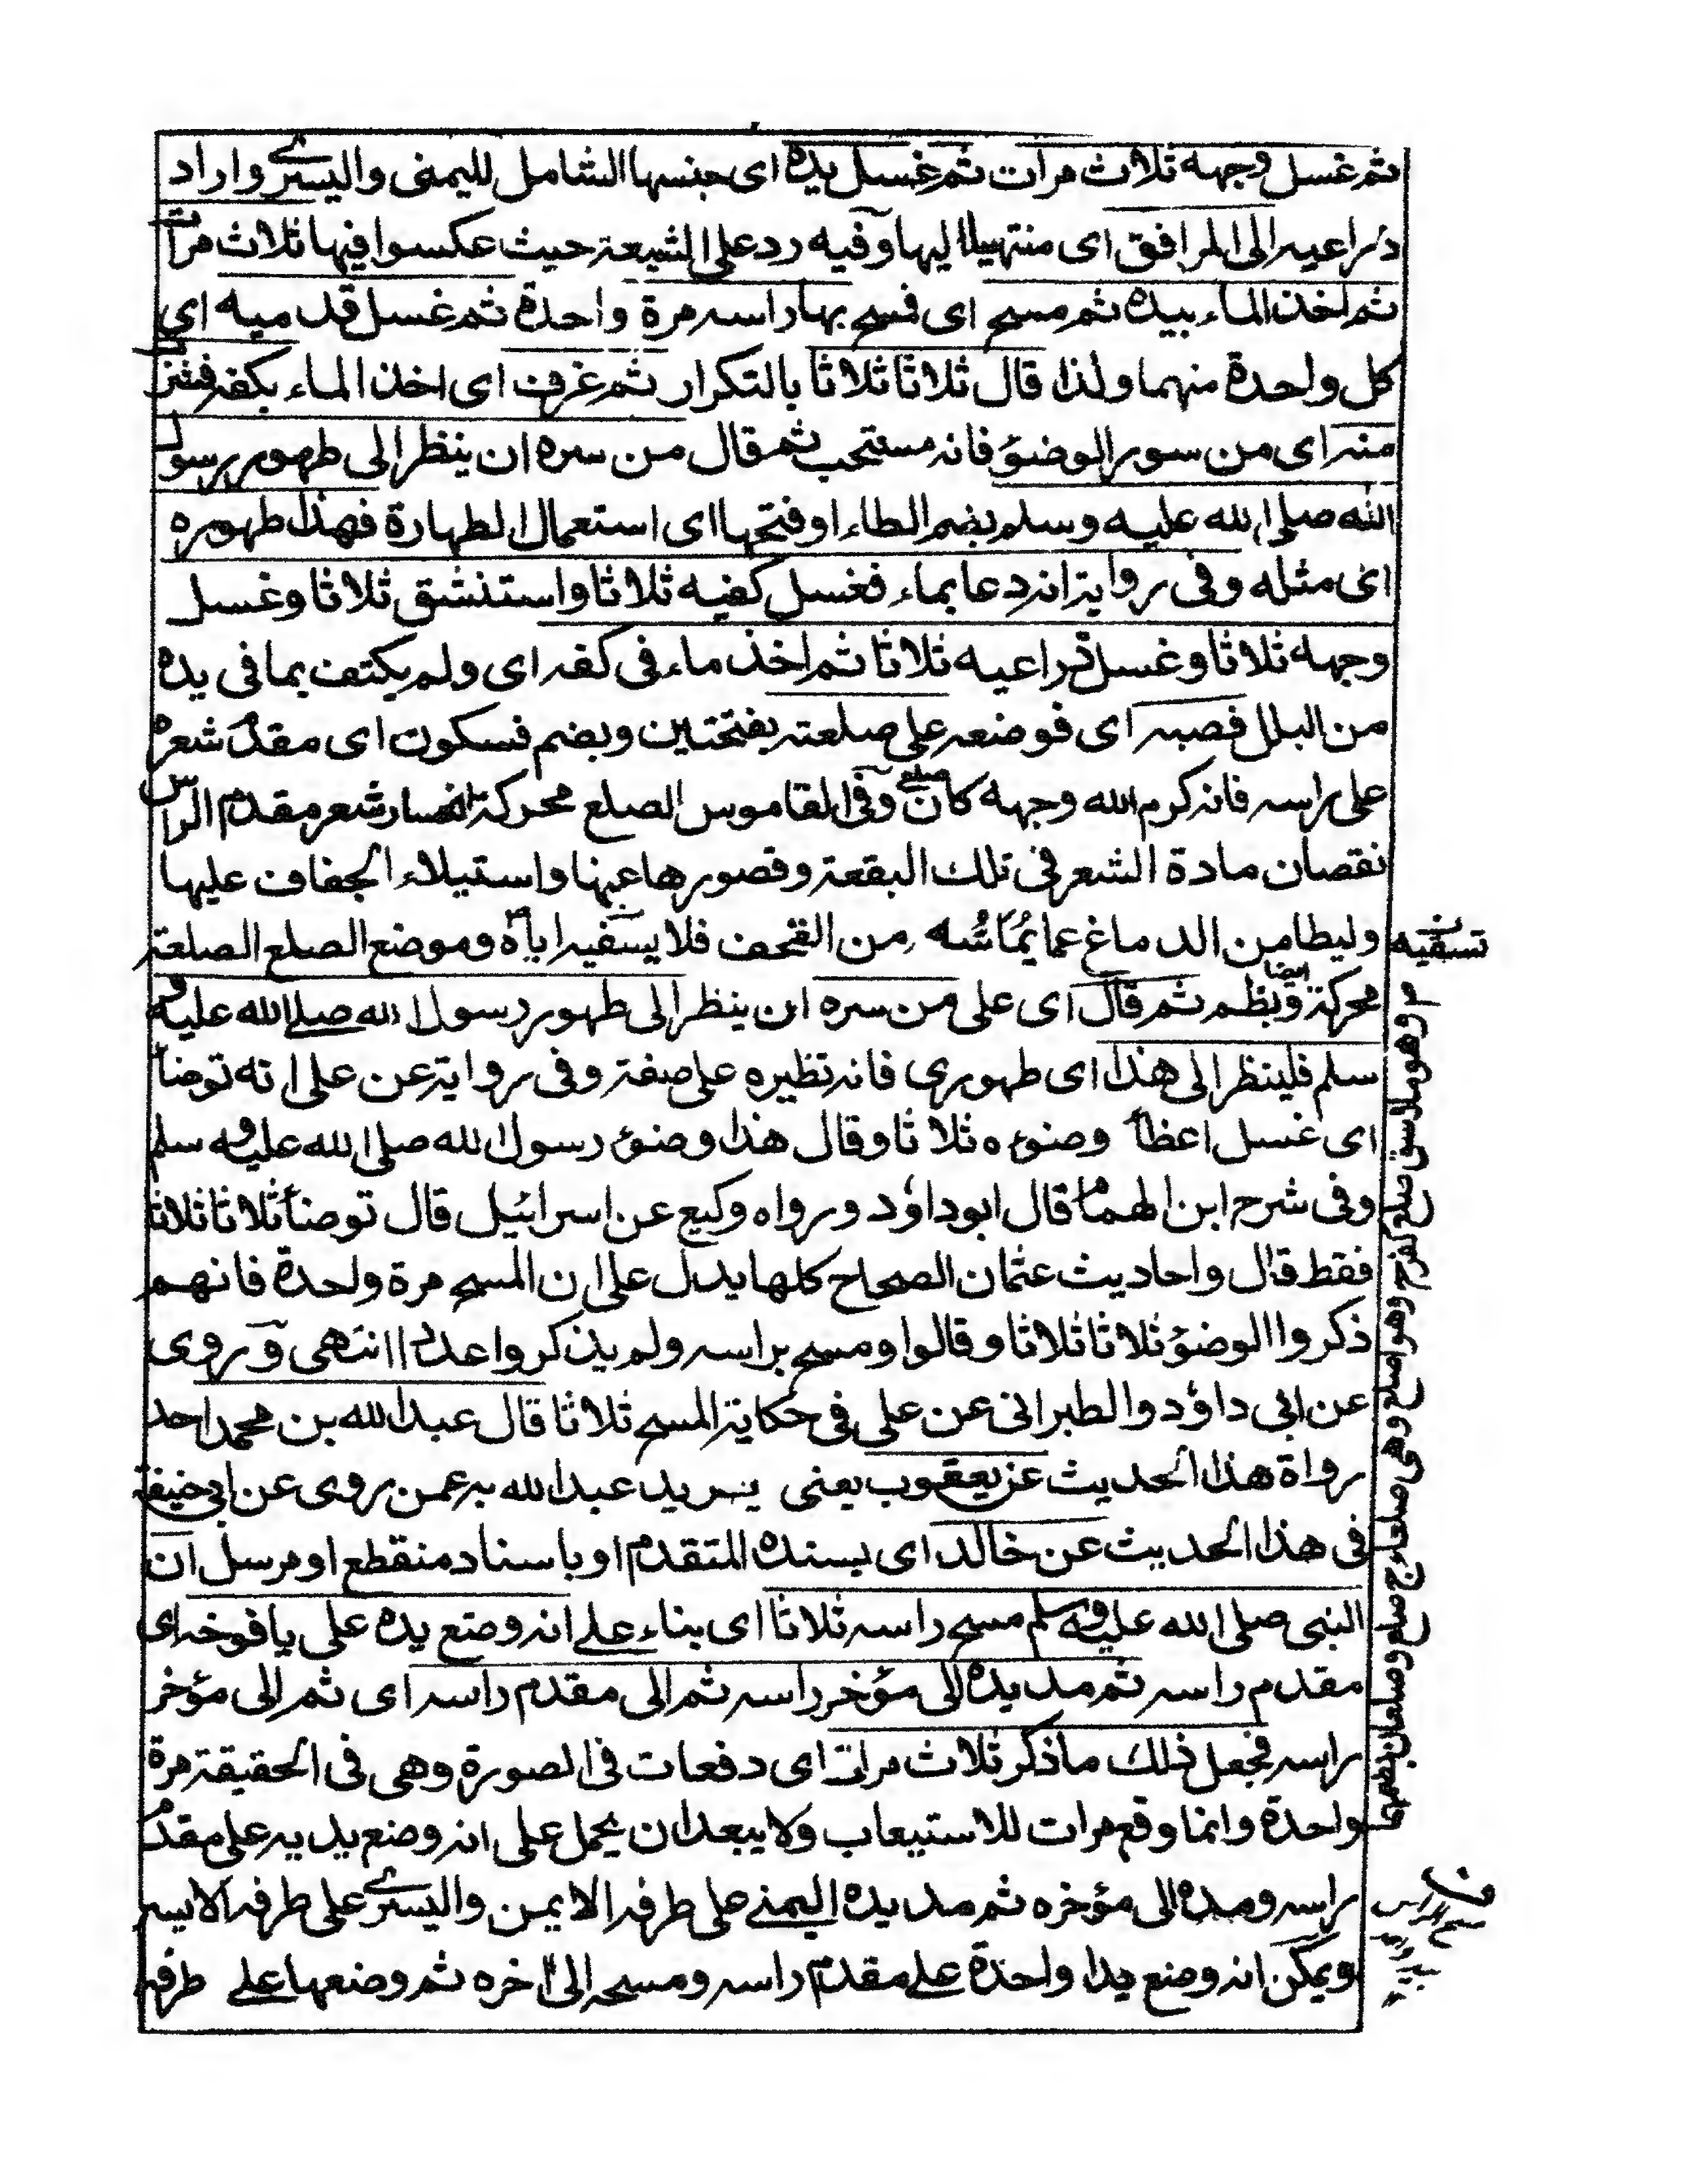 ثم غسل وجهه ثلاث مرات ثم غسل يده اى جنسها الشامل لليمنى واليسرى واراد
ذراعيه الى المرافق اى منتهيا اليها وفيه رد على الشيعة حيث عكسوا فيها ثلاث مرات
ثم اخذ الماء بيده ثم مسح اى فمسح بها راسه مرة واحدة ثم غسل قدميه اي
كل واحدة منهما ولذا قال ثلاثا ثلاثا بالتكرار ثم غرف اى اخذ الماء بكفه فشرب
منه اى من سور الوضوء فانه مستحب ثم قال من سره ان ينظر الى طهور رسول
الله صلى الله عليه وسلم بضم الطاء او فتحها اى استعمال الطهارة فهذا طهوره
اى مثله وفى رواية انه دعا بماء فغسل كفيه ثلاثا واستنشق ثلاثا وغسل
وجهه ثلاثا وغسل ذراعيه ثلاثا ثم اخذ ماء فى كفه اى ولم يكتف بما فى يده
من البلل فصبه اى فوضعه على صلعته بفتحتين وبضم فسكون اى مقدم شعره
على راسه فانه كرم الله وجهه كان صلع وفى القاموس الصلع محركة انحسار شعر مقدم الراس
نقصان مادة الشعر فى تلك البقعة وقصورها عنها واستيلاء الجفاف عليها
وليطامن الدماغ عما يُماسُّه من القحف فلا يسقيه اياه وموضع الصلع الصلعة
محركة وبضم ايضا ثم قال اى على من سره ان ينظر الى طهور رسول الله صلى الله عليه و
سلم فلينظر الى هذا اى طهورى فانه نظيره على صفته وفى رواية عن على انه توضأ
اى غسل اعضاء وضوءه ثلاثا وقال هذا وضوء رسول الله صلى الله عليه و سلم
وفى شرح ابن الهمام قال ابو داؤد ورواه وكيع عن اسرائيل قال توضأ ثلاثا ثلاثا
فقط قال واحاديث عثمان الصحاح كلها يدل على ان المسح مرة واحدة فانهم
ذكروا الوضوء ثلاثا ثلاثا وقالوا ومسح براسه ولم يذكروا عددا انتهى وروى
عن ابى داؤد والطبرانى عن على فى حكاية المسح ثلاثا قال عبد الله بن محمد احد
رواة هذا الحديث عن يعقوب يعنى يريد عبد الله به عمن روى عن ابى حنيفة
فى هذا الحديث عن خالد اى بسنده المتقدم او باسناد منقطع او مرسل ان
النبى صلى الله عليه وسلم مسح راسه ثلاثا اى بناء على انه وضع يده على يافوخه اى
مقدم راسه ثم مد يده الى مؤخر راسه ثم الى مقدم راسه اى ثم الى مؤخر
راسه فجعل ذلك ما ذكر ثلاث مرات اى دفعات فى الصورة وهى فى الحقيقة مرة
واحدة وانما وقع مرات للاستيعاب ولا يبعد ان يحمل على انه وضع يديه على مقدم
راسه ومده الى مؤخره ثم مد يده اليمنى على طرفه الايمن واليسرى على طرفه الايسر
ويمكن انه وضع يدا واحدة على مقدم راسه ومسحه الى اخره ثم وضعها على طرفه
تسقيه
صلع كفرح وهو اصلع وهى صلعاء ج صلع وصلعان بضمهما